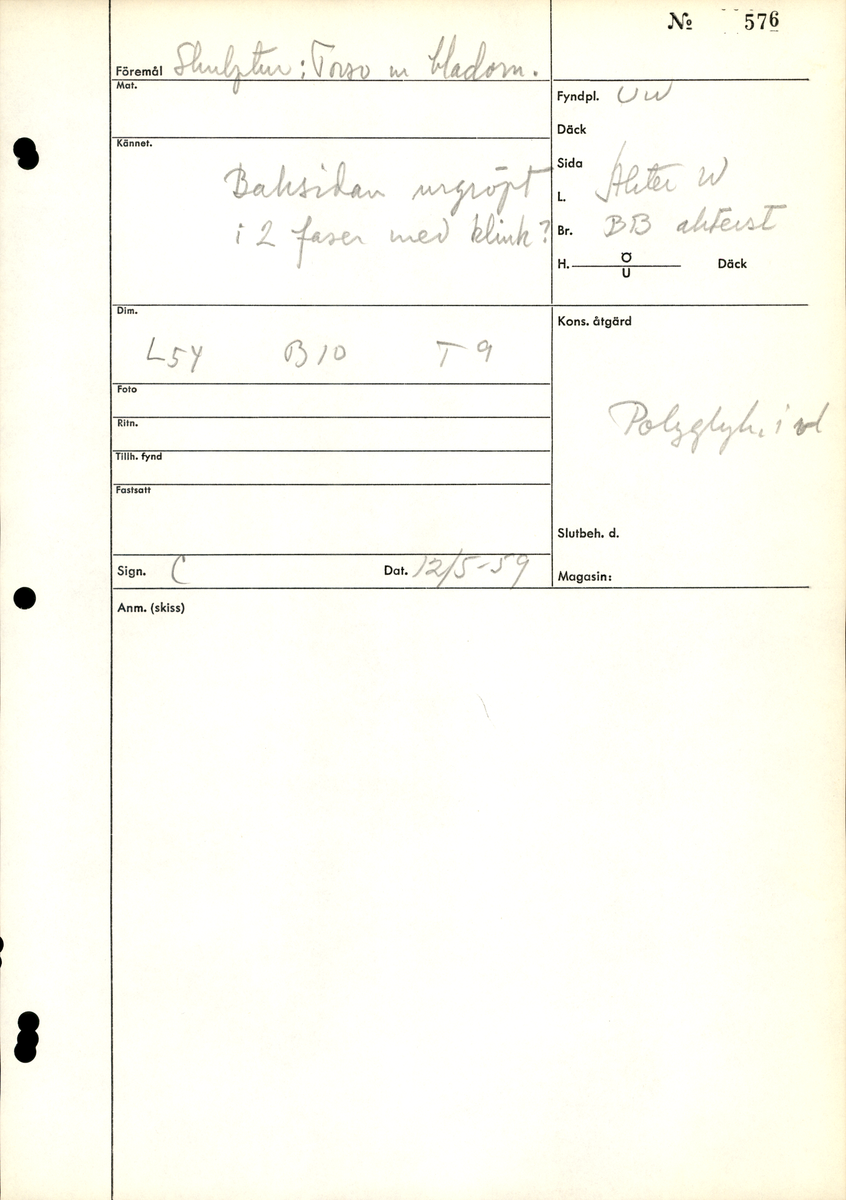 № 576
Föremål Skulptur: Torso m bladorn.
Mat.
Fyndpl. UW
Däck
Kännet.
Baksidan urgröpt
i 2 faser med klink?
Sida
L. Akter W
Br. BB akterst
H. Ö
U
Däck
Dim.
L54 B10 T9
Kons. åtgärd
Polyglyk. i vd
Foto
Ritn.
Tillh. fynd
Fastsatt
Slutbeh. d.
Sign. C Dat. 12/5-59
Magasin:
Anm. (skiss)